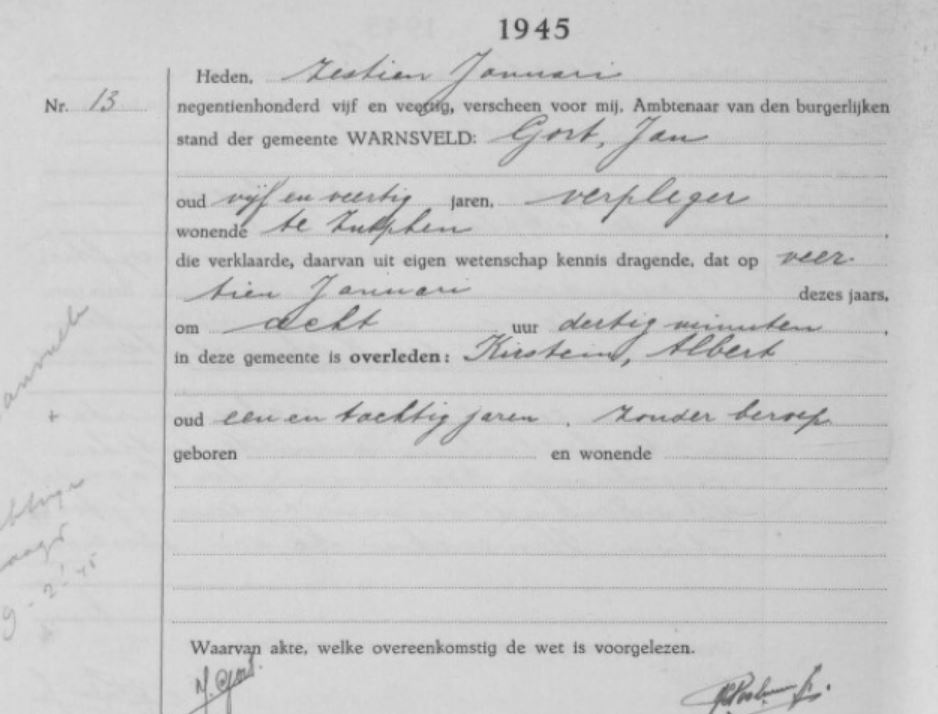 1945
Heden, zestien Januari
Nr. 13 negentienhonderd vijf en veertig, verscheen voor mij, Ambtenaar van den burgerlijken
stand der gemeente WARNSVELD: Gort, Jan
oud vijf en veertig jaren, verpleger
wonende te Zutphen
die verklaarde, daarvan uit eigen wetenschap kennis dragende, dat op veer-
tien Januari dezes jaars,
om acht uur dertig minuten,
in deze gemeente is overleden: Kirstein, Albert
oud een en tachtig jaren, zonder beroep
geboren en wonende
Waarvan akte, welke overeenkomstig de wet is voorgelezen.
J. Gort.